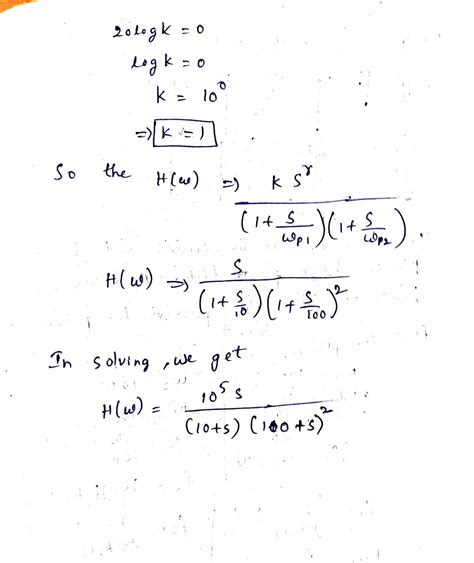 20logk = 0
log k = 0
k = 10⁰
⇒ k = 1
So the H(ω) ⇒ K S^r / (1 + S/ω_P1)(1 + S/ω_P2).
H(ω) ⇒ S / (1 + S/10)(1 + S/100)²
In solving, we get
H(ω) = 10⁵ s / (10+s) (100+s)²